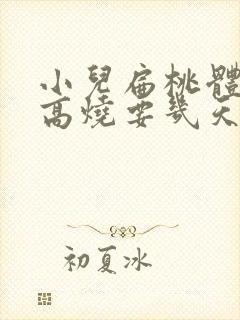 小兒扁桃體
高燒要幾天
初夏冰